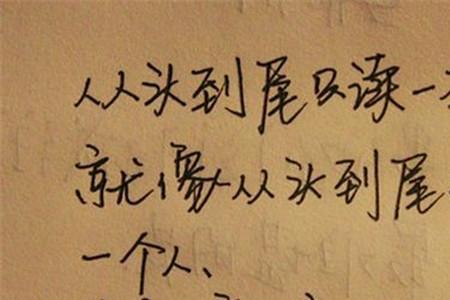 从头到尾只读一
就像从头到尾
一个人、